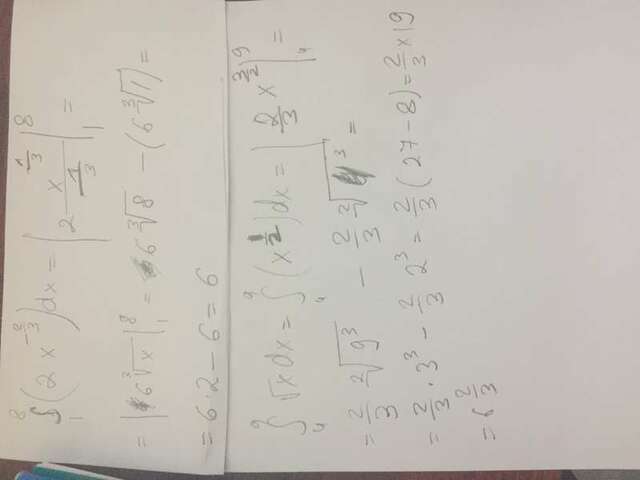 ∫₁⁸ (2x^(-2/3))dx = | 2 x^(1/3)/(1/3) |₁⁸ =
= | 6∛x |₁⁸ = 6∛8 - (6∛1) =
= 6·2 - 6 = 6
∫₄⁹ √x dx = ∫₄⁹ (x^(1/2))dx = | 2/3 x^(3/2) |₄⁹ =
= 2/3 ²√9³ - 2/3 ²√4³ =
= 2/3 · 3³ - 2/3 2³ = 2/3 (27 - 8) = 2/3 x 19
= 6 2/3